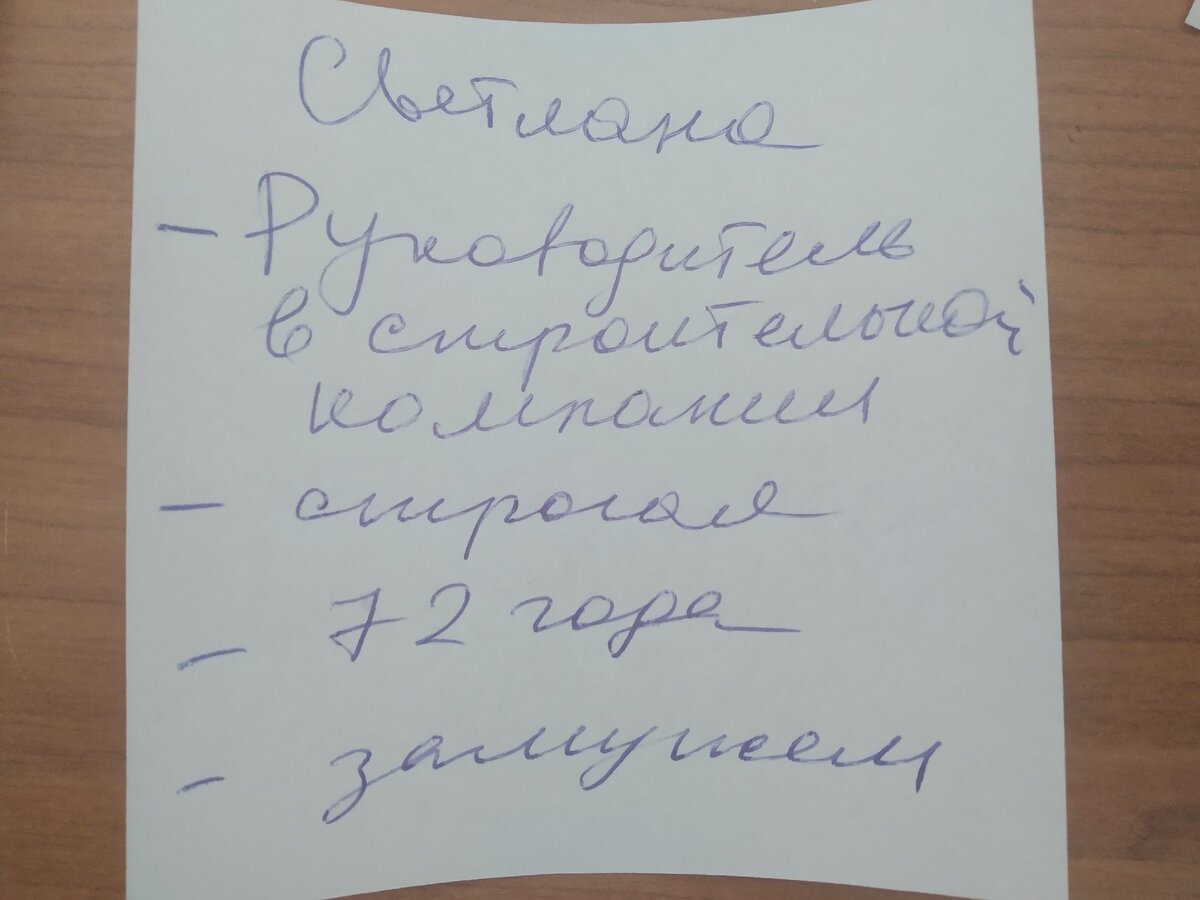 Светлана
- Руководитель
в строительной
компании
- строгая
- 72 года
- замужем